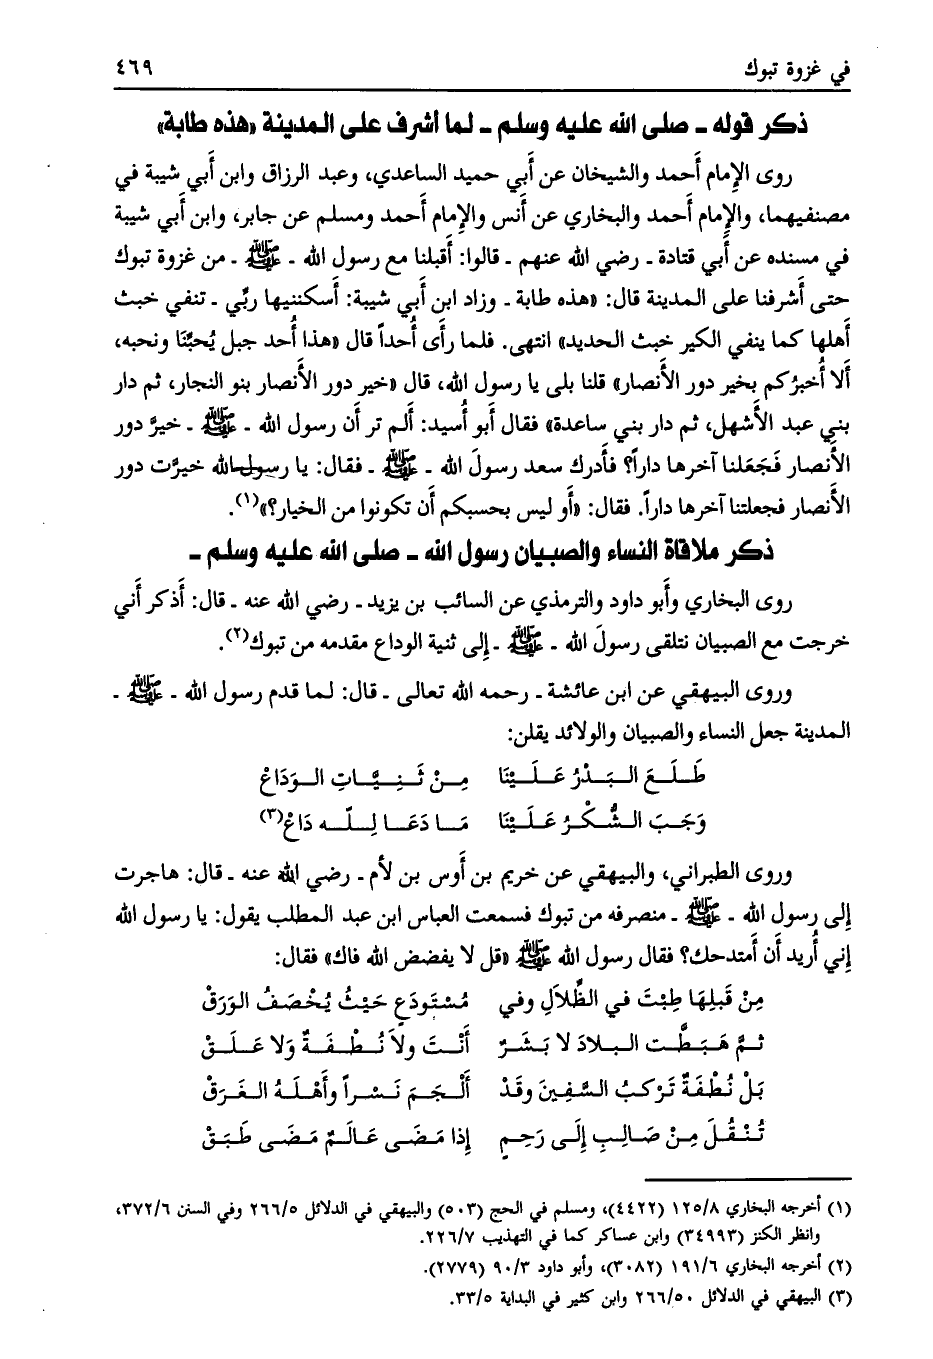 في غزوة تبوك ٤٦٩
ذكر قوله ـ صلى الله عليه وسلم ـ لما أشرف على المدينة «هذه طابة»
روى الإمام أحمد والشيخان عن أبي حميد الساعدي، وعبد الرزاق وابن أبي شيبة في
مصنفيهما، والإمام أحمد والبخاري عن أنس والإمام أحمد ومسلم عن جابر، وابن أبي شيبة
في مسنده عن أبي قتادة ـ رضي الله عنهم ـ قالوا: أقبلنا مع رسول الله ـ ﷺ ـ من غزوة تبوك
حتى أشرفنا على المدينة قال: «هذه طابة ـ وزاد ابن أبي شيبة: أسكننيها ربّي ـ تنفي خبث
أهلها كما ينفي الكير خبث الحديد» انتهى. فلما رأى أُحداً قال «هذا أُحد جبل يُحبّنَا ونحبه،
ألا أُخبرُكم بخير دور الأنصار» قلنا بلى يا رسول الله، قال «خير دور الأنصار بنو النجار، ثم دار
بني عبد الأشهل، ثم دار بني ساعدة» فقال أبو أُسيد: ألم تر أن رسول الله ـ ﷺ ـ خيرَّ دور
الأنصار فَجَعَلنا آخرها داراً؟ فأدرك سعد رسولَ الله ـ ﷺ ـ فقال: يا رسول الله خيرَّت دور
الأنصار فجعلتنا آخرها داراً. فقال: «أو ليس بحسبكم أن تكونوا من الخيار؟»(١).
ذكر ملاقاة النساء والصبيان رسول الله ـ صلى الله عليه وسلم ـ
روى البخاري وأبو داود والترمذي عن السائب بن يزيد ـ رضي الله عنه ـ قال: أذكر أني
خرجت مع الصبيان نتلقى رسولَ الله ـ ﷺ ـ إلى ثنية الوداع مقدمه من تبوك(٢).
وروى البيهقي عن ابن عائشة ـ رحمه الله تعالى ـ قال: لما قدم رسول الله ـ ﷺ ـ
المدينة جعل النساء والصبيان والولائد يقلن:
طَلَعَ البَدْرُ عَلَيْنَا مِنْ ثَنِيَّاتِ الوَدَاعْ
وَجَبَ الشُّكْرُ عَلَيْنَا مَا دَعَا لِلّه دَاعْ(٣)
وروى الطبراني، والبيهقي عن خريم بن أوس بن لأم ـ رضي الله عنه ـ قال: هاجرت
إلى رسول الله ـ ﷺ ـ منصرفه من تبوك فسمعت العباس ابن عبد المطلب يقول: يا رسول الله
إني أُريد أن أمتدحك؟ فقال رسول الله ﷺ «قل لا يفضض الله فاك» فقال:
مِنْ قَبلِهَا طِبْتَ في الظِّلاَلِ وفي مُسْتودَعٍ حَيْثُ يُخْصَفُ الوَرَقْ
ثمَّ هَبَطَّت البلادَ لا بَشَرٌ أَنْتَ ولاَ نُطْفَةٌ وَلا عَلَقْ
بَلْ نُطْفَةٌ تَرْكبُ السَّفِينَ وقَدْ أَلْجَمَ نَسْراً وأَهْلَهُ الغَرَقْ
تُنْقُلَ مِنْ صَالِبٍ إلَى رَحِمٍ إذا مَضَى عَالَمٌ مَضَى طَبَقْ
(١) أخرجه البخاري ١٢٥/٨ (٤٤٢٢)، ومسلم في الحج (٥٠٣) والبيهقي في الدلائل ٢٦٦/٥ وفي السنن ٣٧٢/٦،
وانظر الكنز (٣٤٩٩٣) وابن عساكر كما في التهذيب ٢٢٦/٧.
(٢) أخرجه البخاري ١٩١/٦ (٣٠٨٢)، وأبو داود ٩٠/٣ (٢٧٧٩).
(٣) البيهقي في الدلائل ٢٦٦/٥٠ وابن كثير في البداية ٣٣/٥.